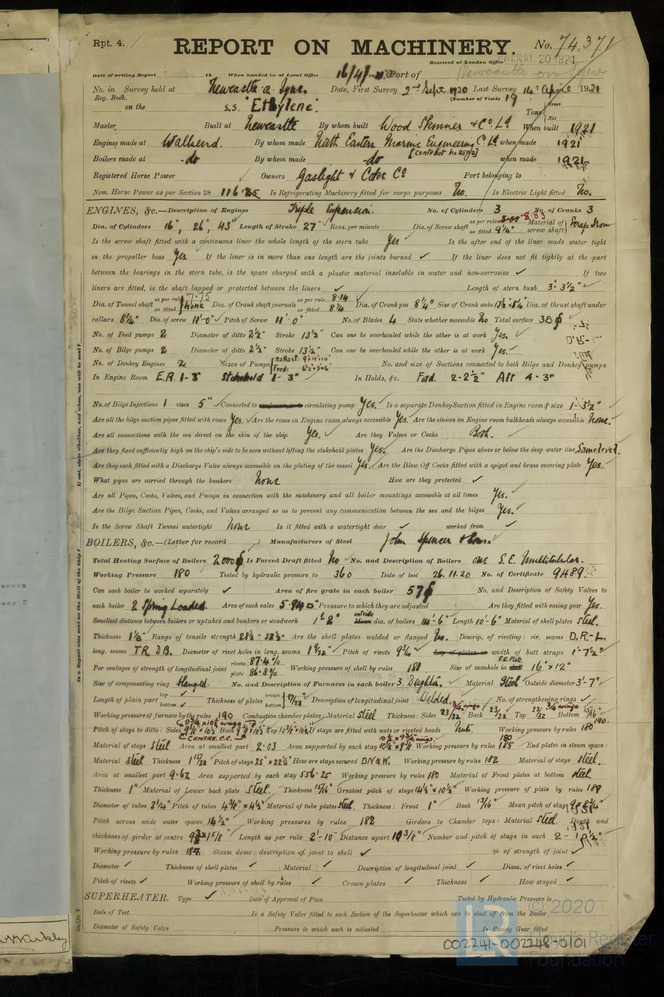 Rpt. 4.
REPORT ON MACHINERY.
No. 74,371
Received at London Office SAT. 20 1921
Date of writing Report 19 When handed in at Local Office 16/4/ Port of Newcastle on Tyne
No. in Survey held at Newcastle-o-Tyne. Date, First Survey 2nd Sept 1920 Last Survey 14 April 1921
Reg. Book. (Number of Visits 19
on the S.S. "Ethylene". Tons Gross Net
Master Built at Newcastle By whom built Wood Skinner & Co Ld When built 1921
Engines made at Wallsend. By whom made North Eastern Marine Engineering Co Ld when made 1921
Boilers made at -do- By whom made -do- when made 1921
Registered Horse Power Owners Gaslight & Coke Co Port belonging to
Nom. Horse Power as per Section 28 116 Is Refrigerating Machinery fitted for cargo purposes No. Is Electric Light fitted No.
ENGINES, &c.—Description of Engines Triple Expansion. No. of Cylinders 3 No. of Cranks 3
Dia. of Cylinders 16", 26", 43" Length of Stroke 27" Revs. per minute Dia. of Screw shaft as per rule 8.53 as fitted 9¼" Material of screw shaft Scrap Iron
Is the screw shaft fitted with a continuous liner the whole length of the stern tube Yes Is the after end of the liner made water tight
in the propeller boss Yes. If the liner is in more than one length are the joints burned ✓ If the liner does not fit tightly at the part
between the bearings in the stern tube, is the space charged with a plastic material insoluble in water and non-corrosive ✓ If two
liners are fitted, is the shaft lapped or protected between the liners ✓ Length of stern bush 3'-3½"
Dia. of Tunnel shaft as per rule 7.75 as fitted None Dia. of Crank shaft journals as per rule 8.14 as fitted 8¼ Dia. of Crank pin 8¼" Size of Crank webs Dia. of thrust shaft under
collars 8¼" Dia. of screw 11'-0" Pitch of Screw 11'-0" No. of Blades 4 State whether moveable No Total surface 38
No. of Feed pumps 2 Diameter of ditto 2½" Stroke 13½" Can one be overhauled while the other is at work Yes.
No. of Bilge pumps 2 Diameter of ditto 2½" Stroke 13½" Can one be overhauled while the other is at work Yes.
No. of Donkey Engines 2 Sizes of Pumps No. and size of Suctions connected to both Bilge and Donkey pumps
In Engine Room E.R. 1-3" Stokehold 1-3" In Holds, &c. Fwd. 2-2½" Aft 4-3"
No. of Bilge Injections 1 sizes 5" Connected to circulating pump Yes. Is a separate Donkey Suction fitted in Engine room & size 1-3½"
Are all the bilge suction pipes fitted with roses Yes. Are the roses in Engine room always accessible Yes. Are the sluices on Engine room bulkheads always accessible None.
Are all connections with the sea direct on the skin of the ship Yes. Are they Valves or Cocks Both.
Are they fixed sufficiently high on the ship's side to be seen without lifting the stokehold plates Yes. Are the Discharge Pipes above or below the deep water line Same level.
Are they each fitted with a Discharge Valve always accessible on the plating of the vessel Yes. Are the Blow Off Cocks fitted with a spigot and brass covering plate Yes.
What pipes are carried through the bunkers None How are they protected ✓
Are all Pipes, Cocks, Valves, and Pumps in connection with the machinery and all boiler mountings accessible at all times Yes.
Are the Bilge Suction Pipes, Cocks, and Valves arranged so as to prevent any communication between the sea and the bilges Yes.
Is the Screw Shaft Tunnel watertight None Is it fitted with a watertight door ✓ worked from ✓
BOILERS, &c.—(Letter for record Manufacturers of Steel John Spencer & Sons.
Total Heating Surface of Boilers 2000 Is Forced Draft fitted No No. and Description of Boilers one S.E. Multitubular.
Working Pressure 180 Tested by hydraulic pressure to 360 Date of test 26.11.20 No. of Certificate 9489.
Can each boiler be worked separately ✓ Area of fire grate in each boiler 57 No. and Description of Safety Valves to
each boiler 2 Spring Loaded. Area of each valve Pressure to which they are adjusted Are they fitted with easing gear Yes.
Smallest distance between boilers or uptakes and bunkers or woodwork 1'-2" outside dia. of boilers 14'-6" Length 10'-6" Material of shell plates Steel.
Thickness Range of tensile strength 28½-32½ Are the shell plates welded or flanged No. Descrip. of riveting: cir. seams D.R.L.
long. seams T.R.D.B. Diameter of rivet holes in long. seams 1 7/32" Pitch of rivets width of butt straps 1'-7½"
Per centages of strength of longitudinal joint rivets 87.4% plate 86.8% Working pressure of shell by rules 180 Size of manhole in 16"×12"
Size of compensating ring flanged. No. and Description of Furnaces in each boiler 3 Deighton. Material Steel Outside diameter 3'-7"
Length of plain part top bottom Thickness of plates crown bottom 17/32" Description of longitudinal joint Welded. No. of strengthening rings ✓
Working pressure of furnace by the rules 190 Combustion chamber plates: Material Steel Thickness: Sides 23/32 Back 23/32 Top 23/32 Bottom
Pitch of stays to ditto: Sides Back Top If stays are fitted with nuts or riveted heads Nuts. Working pressure by rules 180
Material of stays Steel Area at smallest part 2.03 Area supported by each stay Working pressure by rules 185 End plates in steam space:
Material Steel Thickness Pitch of stays How are stays secured D.N.&W. Working pressure by rules 182 Material of stays Steel.
Area at smallest part 9.62 Area supported by each stay 556.25 Working pressure by rules 180 Material of Front plates at bottom Steel
Thickness 1" Material of Lower back plate Steel. Thickness Greatest pitch of stays Working pressure of plate by rules 189
Diameter of tubes 3¼" Pitch of tubes 4¾"×4½" Material of tube plates Steel. Thickness: Front 1" Back Mean pitch of stays
Pitch across wide water spaces 14½" Working pressures by rules 182 Girders to Chamber tops: Material Steel. Depth and
thickness of girder at centre Length as per rule 2'-10" Distance apart 10 3/8" Number and pitch of stays in each 2-
Working pressure by rules 184 Steam dome: description of joint to shell ✓ % of strength of joint ✓
Diameter ✓ Thickness of shell plates ✓ Material ✓ Description of longitudinal joint ✓ Diam. of rivet holes ✓
Pitch of rivets ✓ Working pressure of shell by rules ✓ Crown plates ✓ Thickness ✓ How stayed ✓
SUPERHEATER. Type ✓ Date of Approval of Plan Tested by Hydraulic Pressure to
Date of Test Is a Safety Valve fitted to each Section of the Superheater which can be shut off from the Boiler
Diameter of Safety Valve Pressure to which each is adjusted Is Easing Gear fitted
© 2020
Lloyd's Register
Foundation
002241-002248-0101